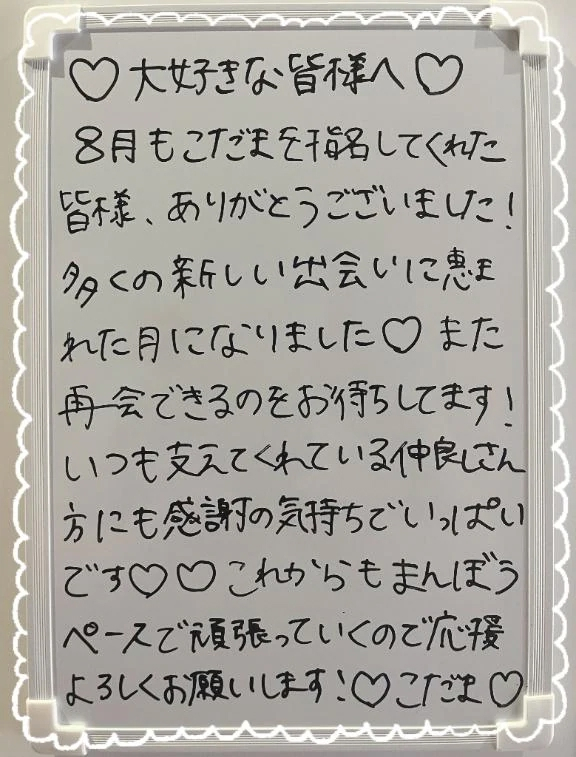 ♡大好きな皆様へ♡
8月もこだまを指名してくれた
皆様、ありがとうございました！
多くの新しい出会いに恵ま
れた月になりました♡また
再会できるのをお待ちしてます！
いつも支えてくれている仲良しさん
方にも感謝の気持ちでいっぱい
です♡♡これからもまんぼう
ペースで頑張っていくので応援
よろしくお願いします！♡こだま♡